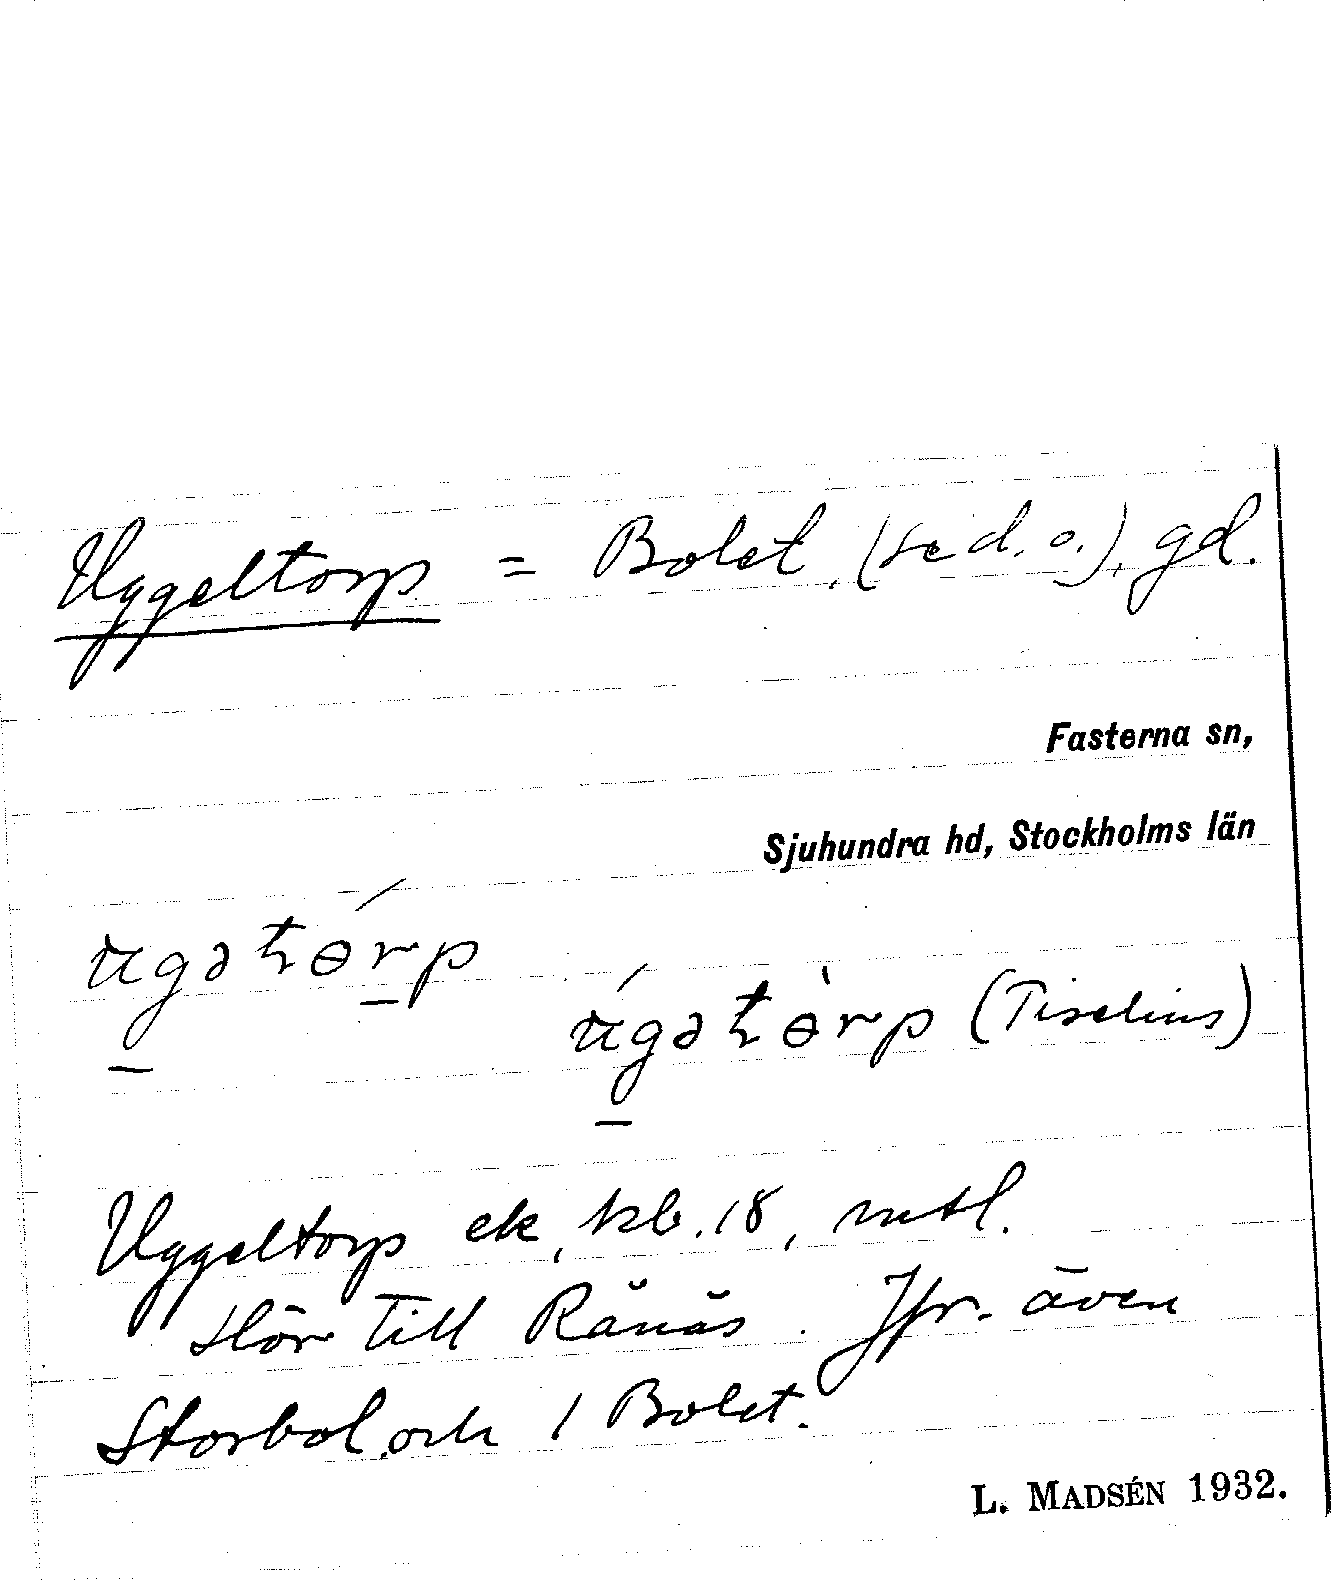 Uggeltorp = Bolet (se d. o.), gd.
Fasterna sn,
Sjuhundra hd, Stockholms län
ugətɵrp
úgətɵ̀rp (Tiselius)
Uggeltorp ek, kb. 18, mtl.
Hör till Rånäs. Jfr. även
Storbol och 1 Bolet.
L. MADSÉN 1932.